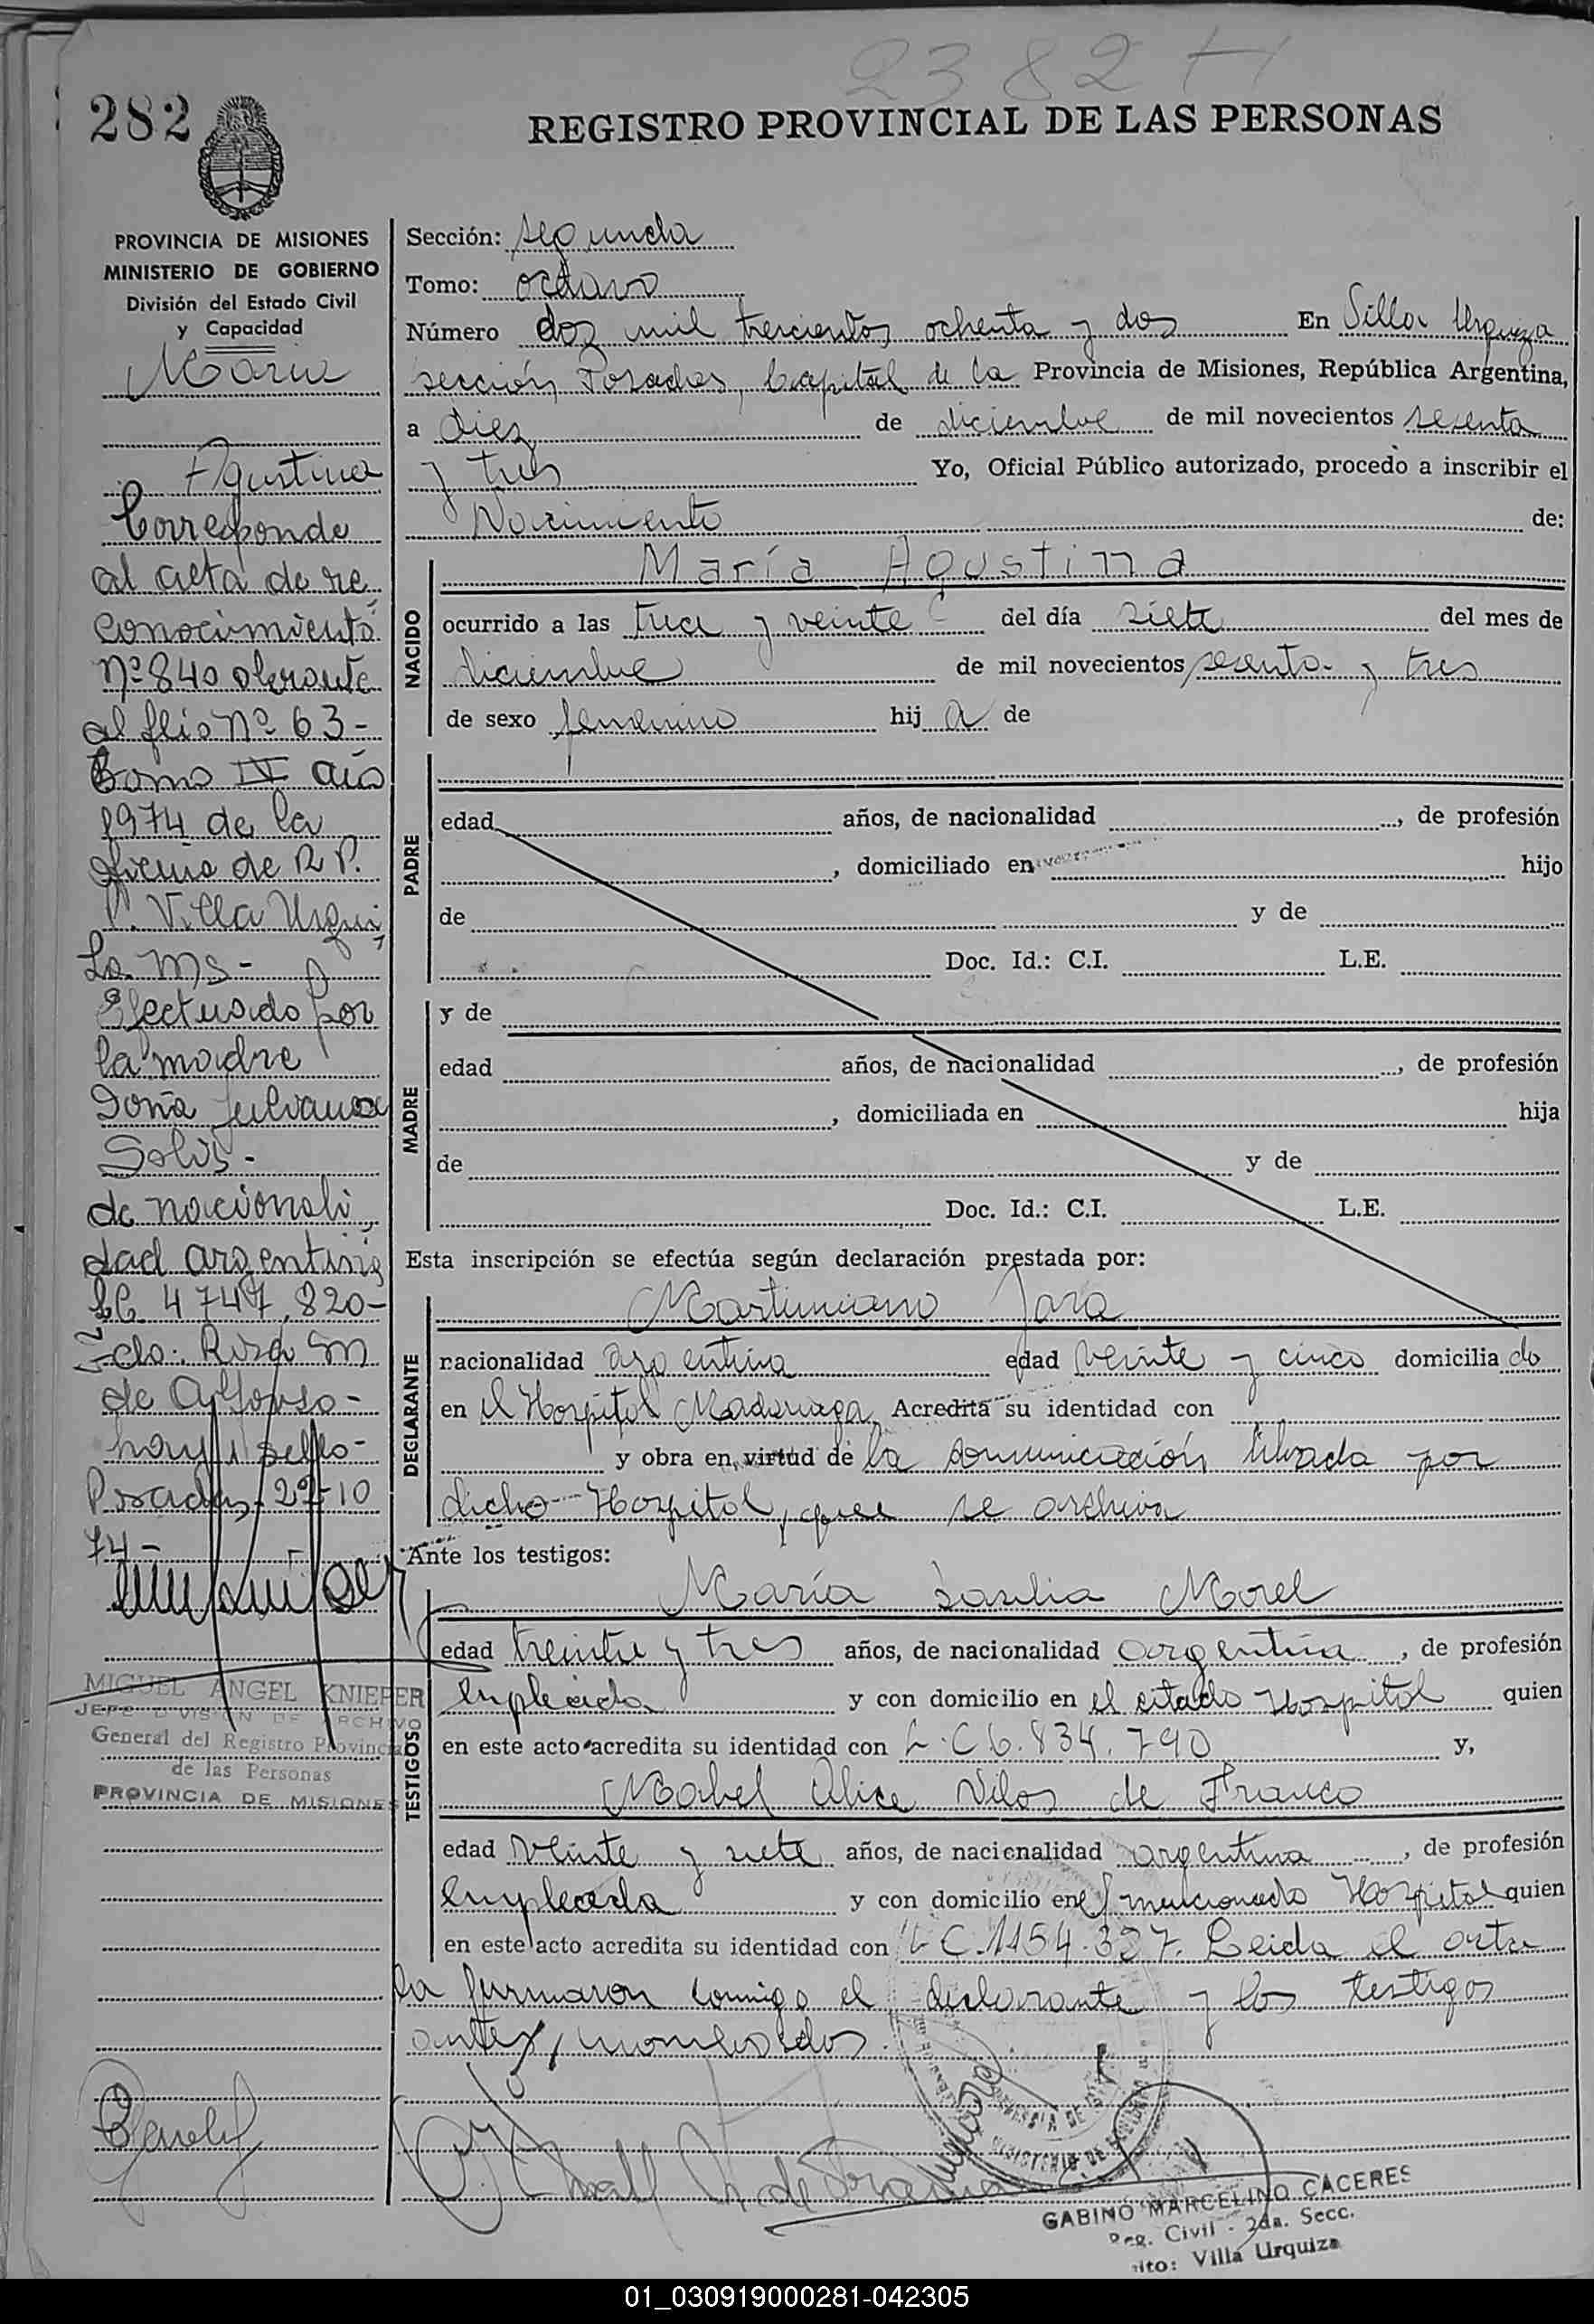 2382
282
REGISTRO PROVINCIAL DE LAS PERSONAS
PROVINCIA DE MISIONES
MINISTERIO DE GOBIERNO
División del Estado Civil
y Capacidad
María
Agustina
Corresponde
al acta de re
conocimiento
Nº 840 obrante
al flio Nº 63-
Tomo IV año
1974 de la
oficina de R P.
P. Villa Urqui
za. Ms-
Efectuado por
la madre
Doña Silvana
Solis-
de nacionali
dad argentina
LC. 4747.820-
Fdo: Rosa M
de Alfonso-
hay 1 sello-
Posadas, 29-10
74-
MIGUEL ANGEL KNIEPER
JEFE DIVISION DE ARCHIVO
General del Registro Provincial
de las Personas
PROVINCIA DE MISIONES
Sección: segunda
Tomo: octavo
Número dos mil trescientos ochenta y dos En Villa Urquiza
sección Posadas, Capital de la Provincia de Misiones, República Argentina,
a diez de diciembre de mil novecientos sesenta
y tres Yo, Oficial Público autorizado, procedo a inscribir el
Nacimiento de:
NACIDO
María Agustina
ocurrido a las trece y veinte del día siete del mes de
diciembre de mil novecientos sesenta y tres
de sexo femenino hij a de
PADRE
edad años, de nacionalidad , de profesión
, domiciliado en hijo
de y de
Doc. Id.: C.I. L.E.
MADRE
y de
edad años, de nacionalidad , de profesión
, domiciliada en hija
de y de
Doc. Id.: C.I. L.E.
Esta inscripción se efectúa según declaración prestada por:
DECLARANTE
Martiniano Jara
nacionalidad argentina edad veinte y cinco domicilia do
en el Hospital Madariaga, Acredita su identidad con
y obra en virtud de la comunicación librada por
dicho Hospital, que se archiva
Ante los testigos:
TESTIGOS
María Morel
edad treinta y tres años, de nacionalidad argentina, de profesión
empleada y con domicilio en el citado Hospital quien
en este acto acredita su identidad con L.C 6.834.790 y,
Mabel Alice Vilos de Franco
edad veinte y siete años, de nacionalidad argentina, de profesión
empleada y con domicilio en el mencionado Hospital quien
en este acto acredita su identidad con L C. 1154.327. Leida el acta
la firmaron conmigo el declarante y los testigos
antes nombrados.
GABINO MARCELINO CACERES
Reg. Civil - 2da. Secc.
Villa Urquiza
01_030919000281-042305